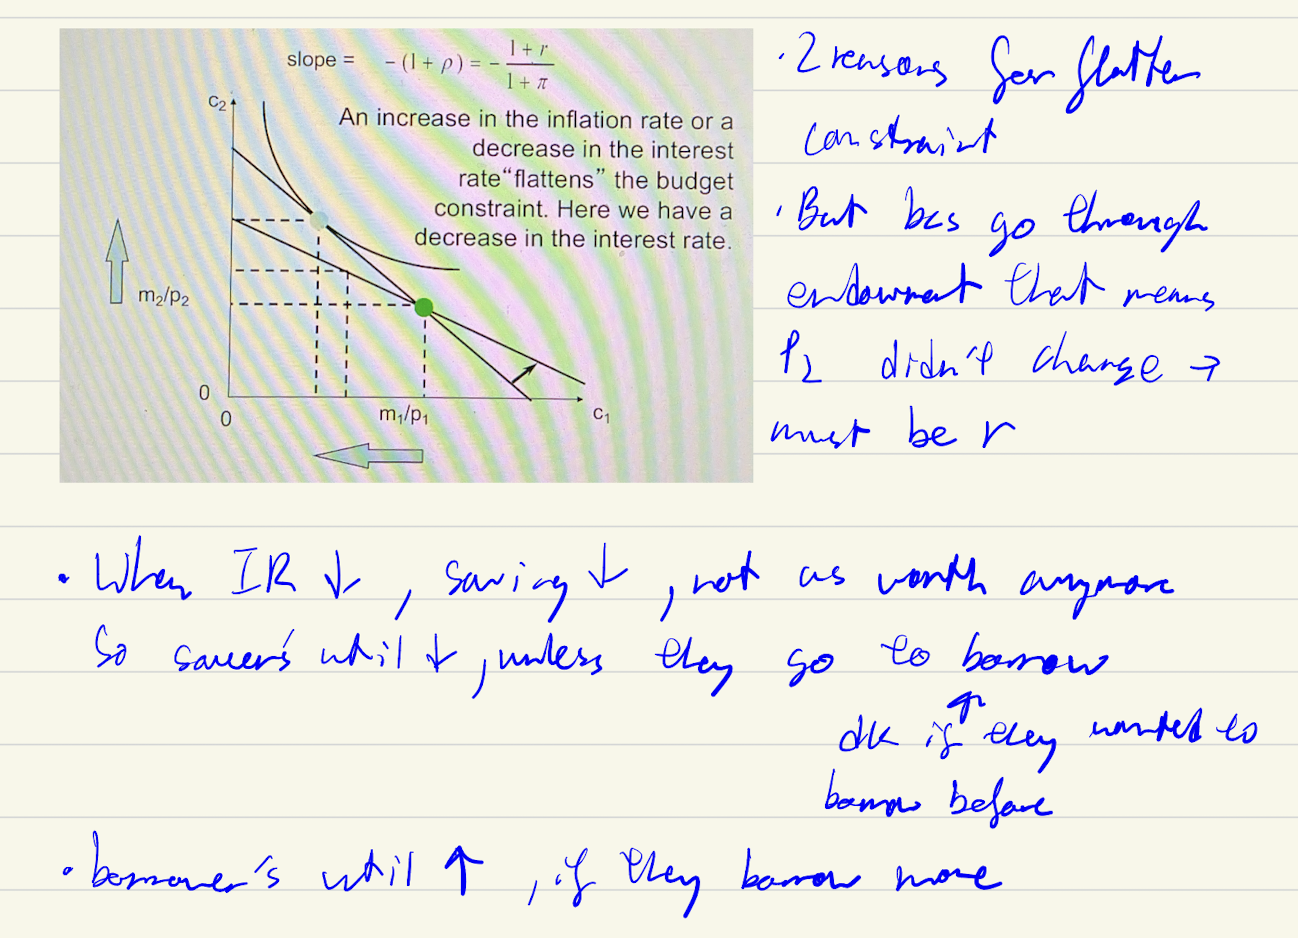 slope = - (1 + ρ) = - 1 + r / 1 + π
c₂
An increase in the inflation rate or a
decrease in the interest
rate“flattens” the budget
constraint. Here we have a
decrease in the interest rate.
m₂/p₂
0
0
m₁/p₁
c₁
· 2 reasons for flatten
constraint
· But bcs go through
endowment that means
P₂ didn't change →
must be r
· When IR ↓, saving ↓, not as worth anymore
So saver's util ↓, unless they go to borrow
↑
dk if they wanted to
borrow before
· borrower's util ↑, if they borrow more